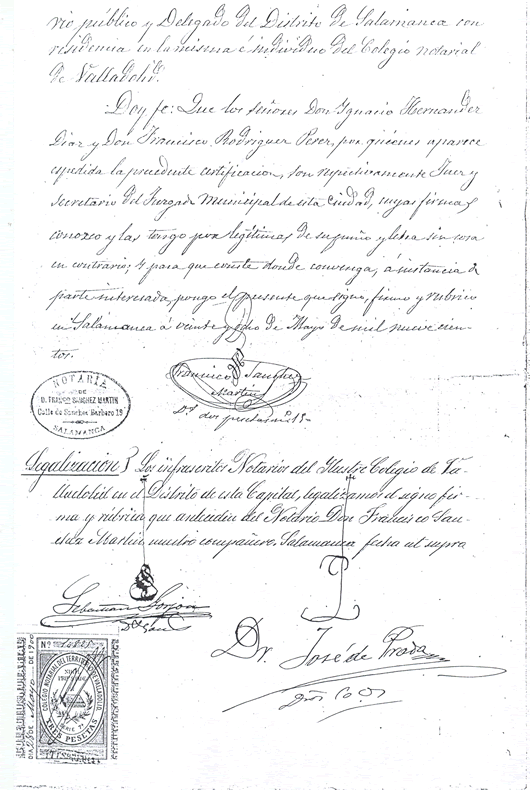 rio público y Delegado del Distrito de Salamanca con
residencia en la misma é individuo del Colegio notarial
de Valladolid.
Doy fe: Que los señores Don Ignacio Hernandez
Diaz y Don Francisco Rodriguez Perez, por quienes aparece
espedida la precedente certificacion, son respectivamente Juez y
secretario del Juzgado Municipal de esta Ciudad, cuyas firmas
conozco y las tengo por legítimas de su puño y letra sin cosa
en contrario; y para que conste donde convenga, á instancia de
parte interesada, pongo el presente que signo, firmo y rubrico
en Salamanca á veinte y ocho de Mayo de mil nuevecien-
tos.
Francisco Sanchez
Martin
Ds. dos pesetas
NOTARIA
DE
D. FRANCO SANCHEZ MARTIN
Calle de Sanchez Barbero 19
SALAMANCA
Legalizacion } Los infrascritos Notarios del Ilustre Colegio de Va-
lladolid en el Distrito de esta Capital, legalizamos el signo fir-
ma y rúbrica que anteceden del Notario Don Francisco San-
chez Martin nuestro compañero. Salamanca fecha ut supra
Sebastian Gorjon
Dr. José de Prada
Nº
COLEGIO NOTARIAL DEL TERRITORIO DE VALLADOLID
NIHIL PRIUS FIDE
SERIE 7ª
TRES PESETAS
DIA 28 DE Mayo DE 1900